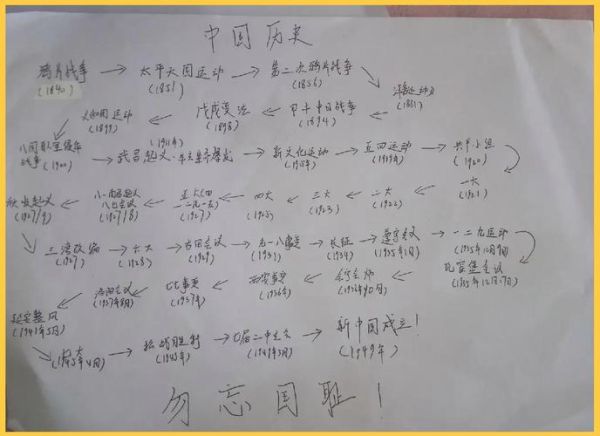 中国历史
鸦片战争 → 太平天国运动 → 第二次鸦片战争
(1840) (1851) (1856)
洋务运动
(1861)
义和团运动 ← 戊戌变法 ← 甲午中日战争
(1899) (1898) (1894)
八国联军侵华战争
(1900)
(1911年)
武昌起义·辛亥革命爆发 → 新文化运动 → 五四运动 → 共产小组
(1915年) (1919年) (1920)
一大
(1921)
秋收起义 ← 八一南昌起义 八七会议 ← 五大 ← 四大 ← 三大 ← 二大
(1927/9) (1927/8) (1927) (1925) (1923) (1922)
三湾改编 → 六大 → 古田会议 → 九一八事变 → 长征 → 遵义会议 → 一二九运动
(1927) (1928) (1929) (1931) (1934) (1935年1月) (1935年12月9日)
瓦窑堡会议
(1935年12月17日)
洛川会议 ← 七七事变 ← 西安事变 ← 会宁会师
(1937年8月) (1937年) (1936年) (1936年10月)
延安整风
(1941年5月)
七大 → 抗战胜利 → 七届二中全会 → 新中国成立!
(1945年4月) (1945年) (1949年3月) (1949年)
勿忘国耻!